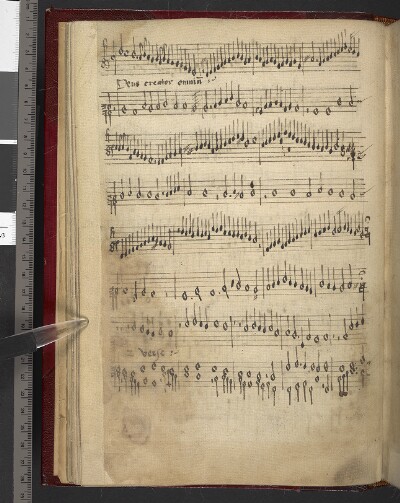 Deus creator omniū
Verse